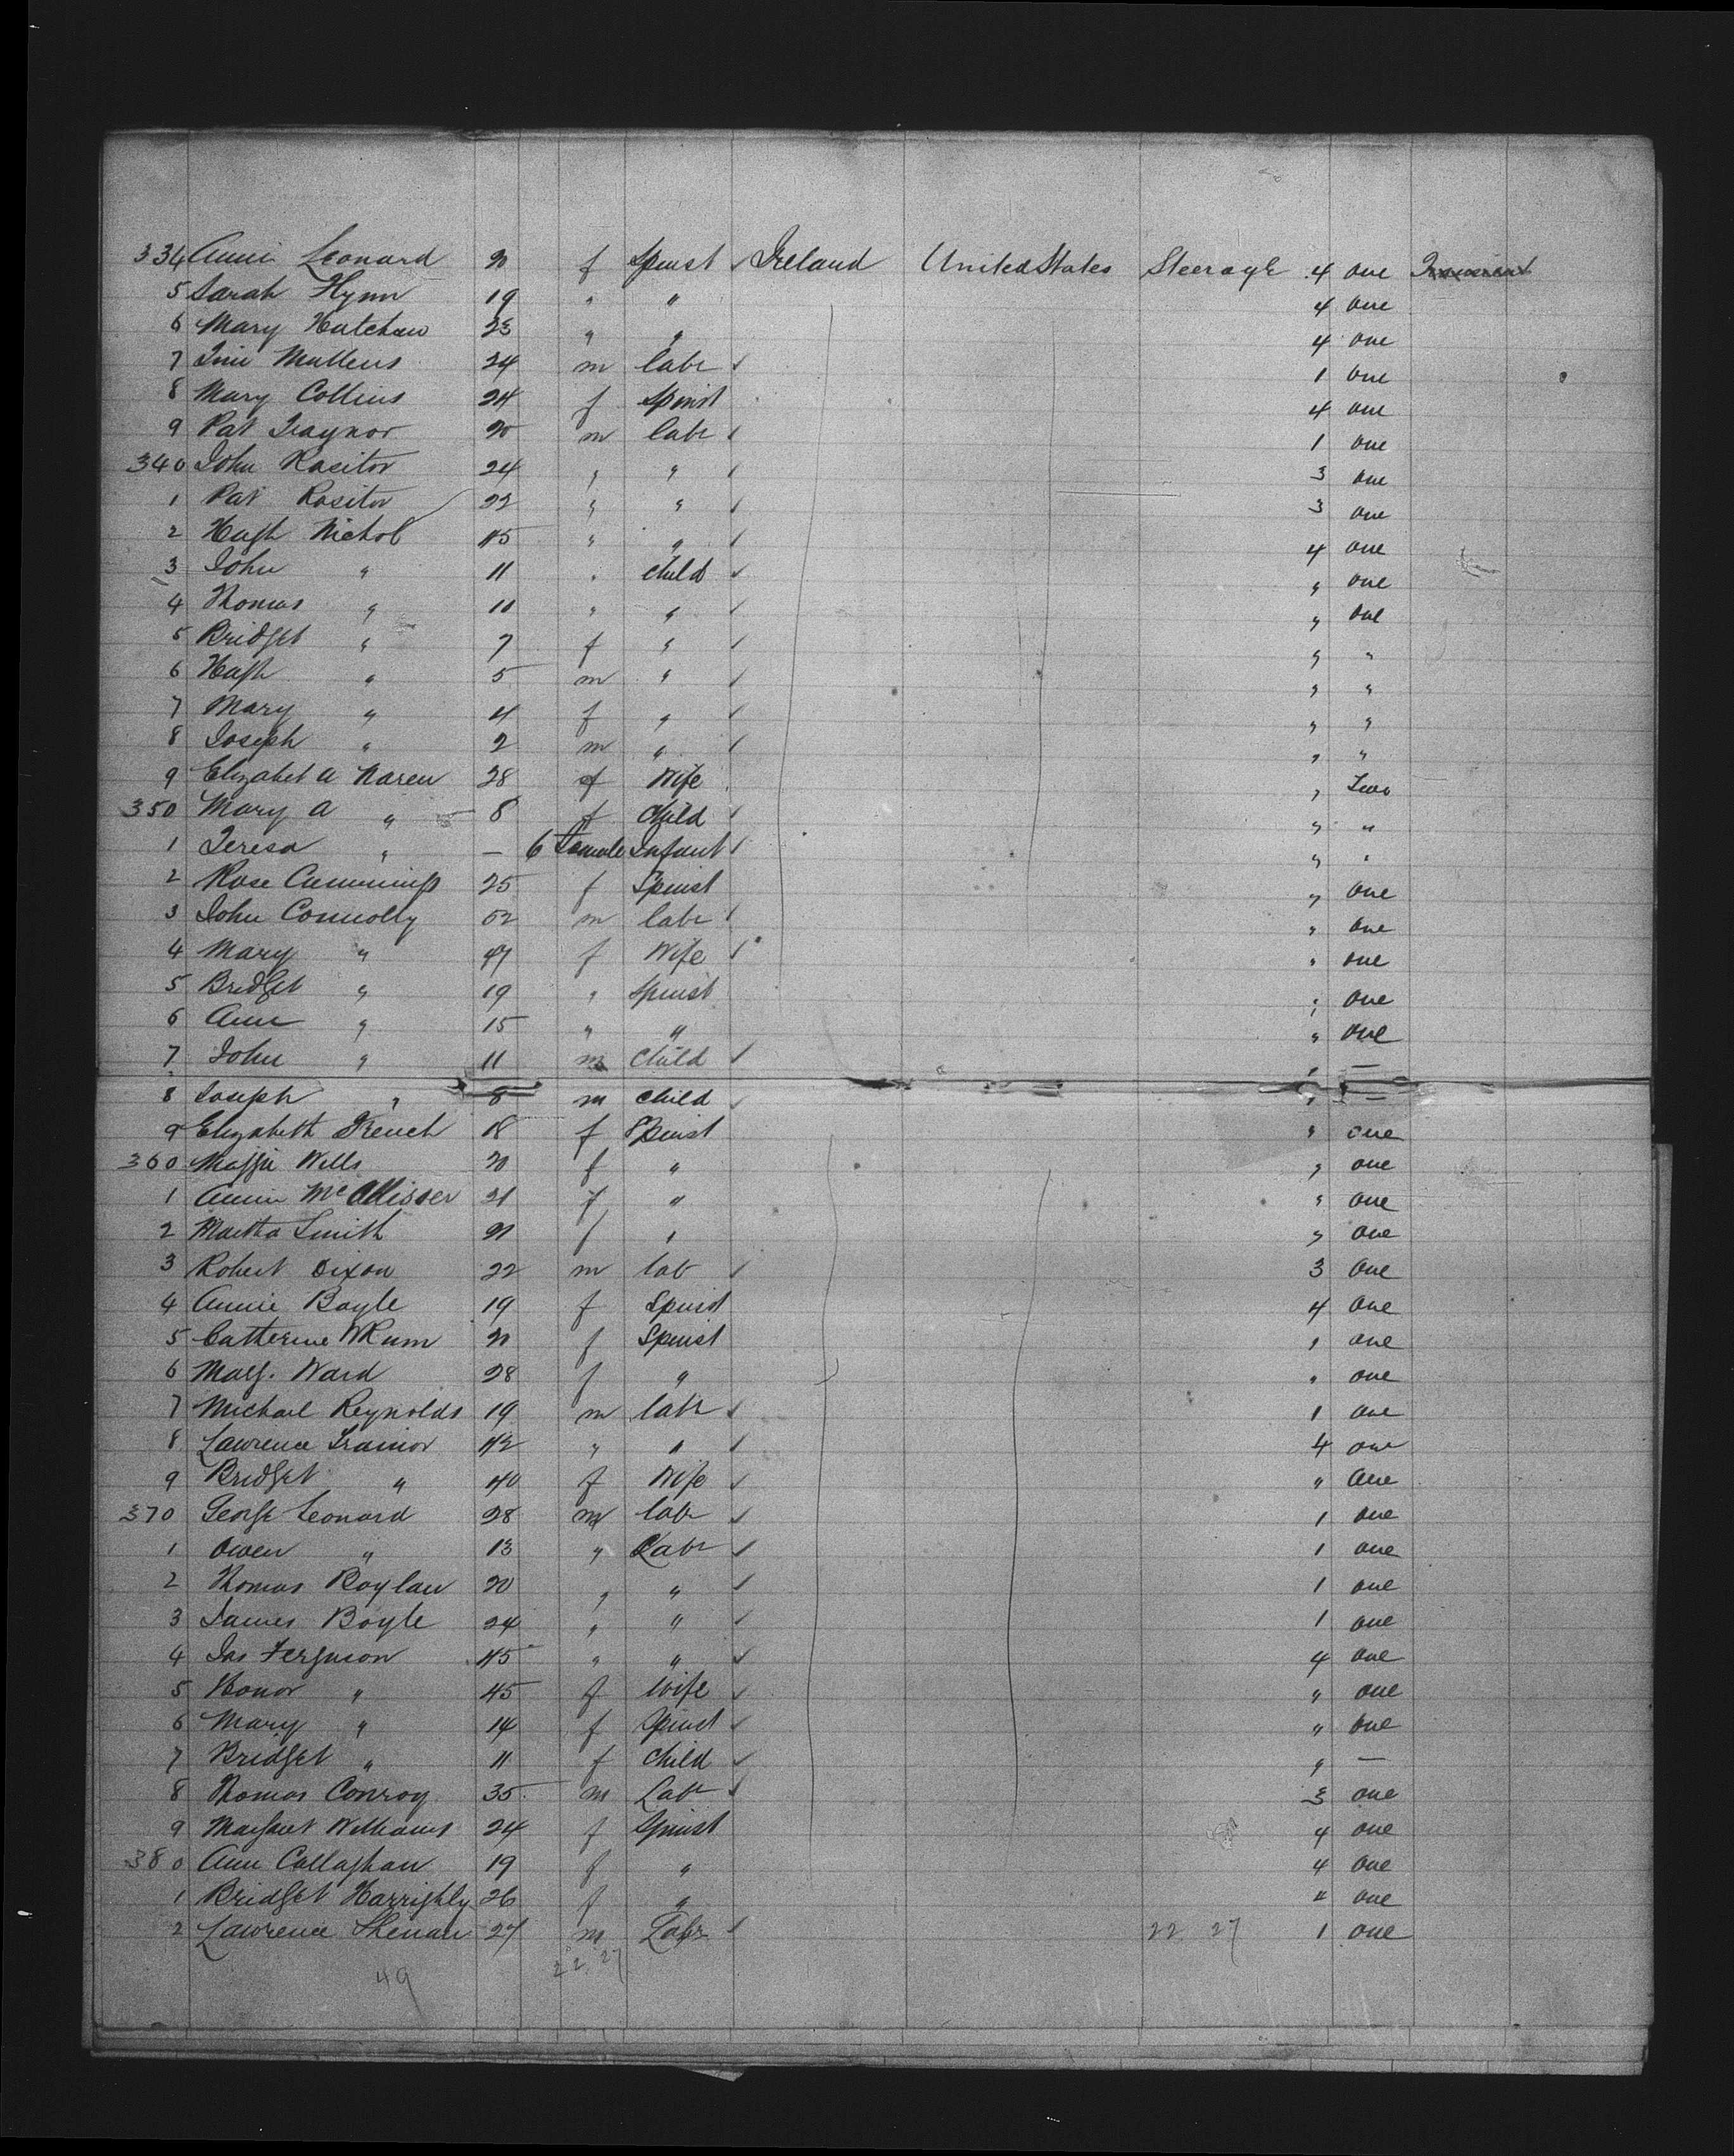 334 Annie Leonard 20 f Spinst ✓ Ireland United States Steerage 4 one
5 Sarah Flynn 19 " " 4 one
6 Mary Hutchaw 23 " " 4 one
7 Mullens 24 m labr ✓ 1 one
8 Mary Collins 24 f Spinst 4 one
9 Pat Traynor 20 m labr ✓ 1 one
340 John Rositor 24 " " ✓ 3 one
1 Pat Rositor 22 " " ✓ 3 one
2 Hugh Nichol 45 " " ✓ 4 one
3 John " 11 " child ✓ " one
4 Thomas " 10 " " ✓ " one
5 Bridget " 7 f " ✓ " "
6 Hugh " 5 m " ✓ " "
7 Mary " 4 f " ✓ " "
8 Joseph " 2 m " ✓ " "
9 Elizabet A Naren 28 f Wife " Two
350 Mary A " 8 f Child ✓ " "
1 Teresa " — 6 Female Infant ✓ " "
2 Rose Cummings 25 f Spinst " one
3 John Connolly 52 m labr ✓ " one
4 Mary " 47 f Wife ✓ " one
5 Bridget " 19 " Spinst " one
6 Ann " 15 " " " one
7 John " 11 m Child ✓ " —
8 Joseph " 8 m child ✓ " —
9 Elizabeth French 18 f Spinst " one
360 Maggie Wells 20 f " " one
1 Annie McAllisser 21 f " " one
2 Martha Smith 21 f " " one
3 Robert Dixon 22 m lab ✓ 3 one
4 Annie Boyle 19 f Spinst 4 one
5 Catherine 20 f Spinst " one
6 Marg. Ward 28 f " " one
7 Michael Reynolds 19 m labr ✓ 1 one
8 Lawrence Trainor 42 " " ✓ 4 one
9 Bridget " 40 f Wife ✓ " One
370 George Leonard 28 m labr ✓ 1 one
1 Owen " 13 " Labr ✓ 1 one
2 Thomas Boylan 20 " " ✓ 1 one
3 James Boyle 24 " " ✓ 1 one
4 Jas Ferguson 45 " " ✓ 4 one
5 Honor " 45 f Wife ✓ " one
6 Mary " 14 f Spinst ✓ " one
7 Bridget " 11 f Child ✓ " —
8 Thomas Conroy 35 m Labr ✓ 3 one
9 Margaret Williams 24 f Spinst 4 one
380 Ann Callaghan 19 f " 4 one
1 Bridget Harrighly 26 f " " one
2 Lawrence Shenan 27 m Labr ✓ 22 27 1 one
49 22 27